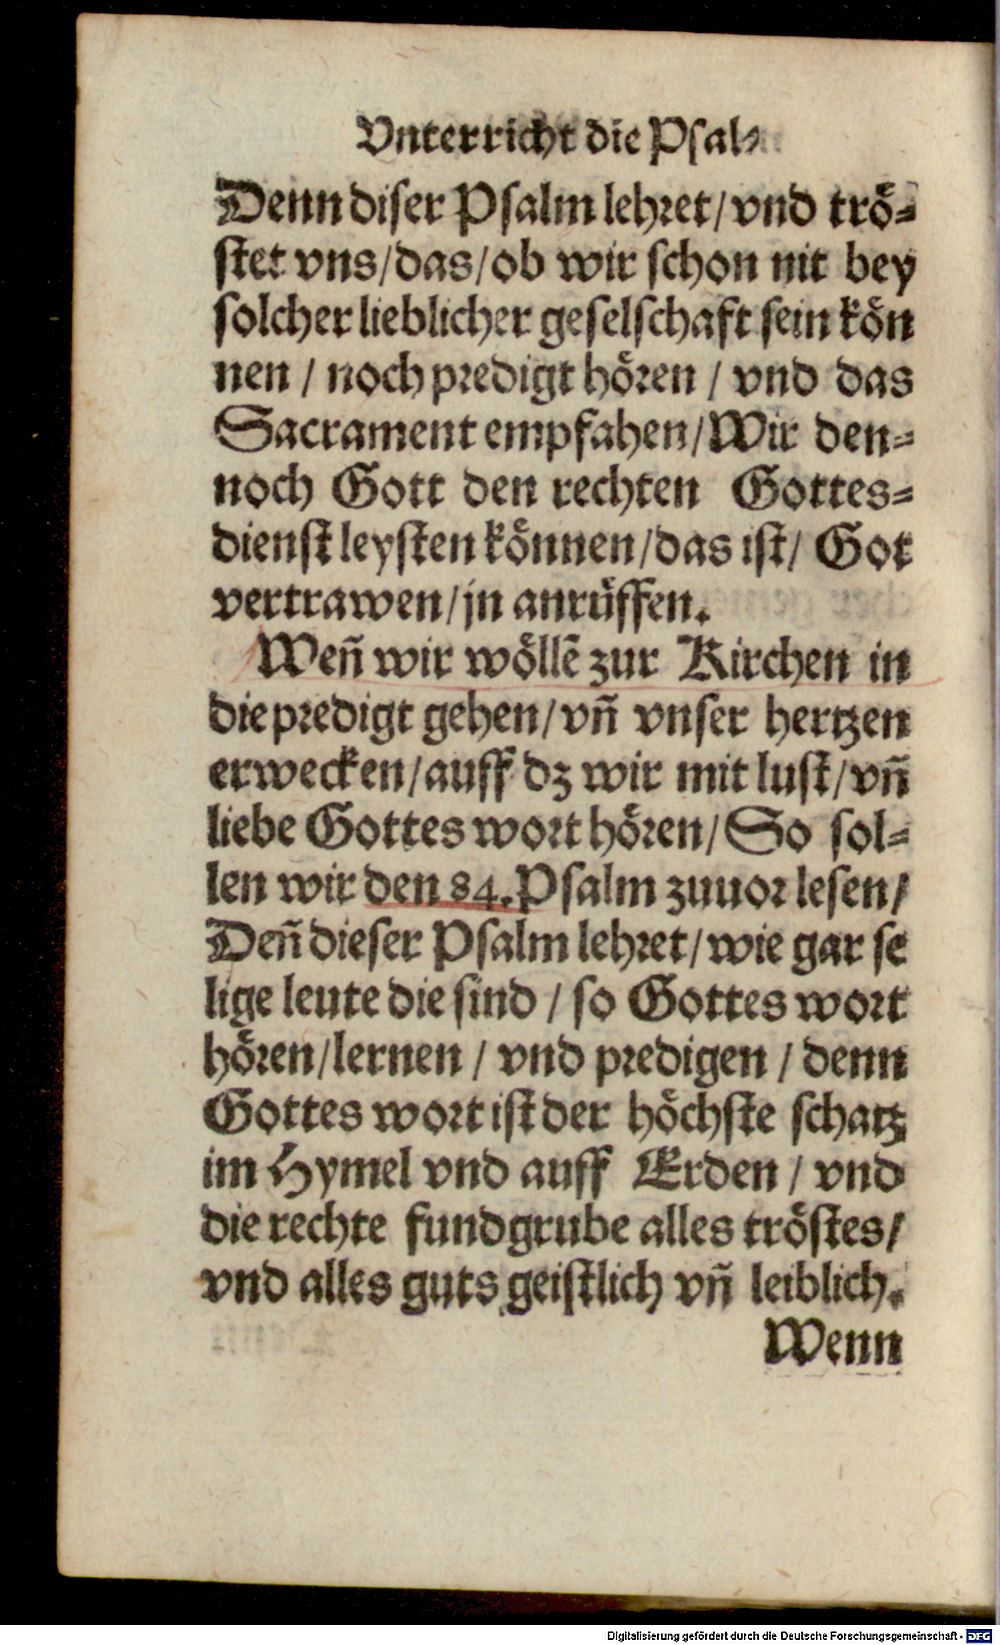 Vnterricht die Psal⸗
Denn diser Psalm lehret/ vnd trö⸗
stet vns/das/ob wir schon nit bey
solcher lieblicher geselschaft sein kön
nen / noch predigt hören / vnd das
Sacrament empfahen/Wir den⸗
noch Gott den rechten Gottes⸗
dienst leysten können/das ist/ Got
vertrawen/jn anrüffen.
Weñ wir wöllē zur Kirchen in
die predigt gehen/vñ vnser hertzen
erwecken/auff dz wir mit lust/vñ
liebe Gottes wort hören/ So sol⸗
len wir den 84. Psalm zuuor lesen/
Deñ dieser Psalm lehret/ wie gar se
lige leute die sind / so Gottes wort
hören/lernen / vnd predigen / denn
Gottes wort ist der höchste schatz
im Hymel vnd auff Erden / vnd
die rechte fundgrube alles tröstes/
vnd alles guts geistlich vñ leiblich.
Wenn
Digitalisierung gefördert durch die Deutsche Forschungsgemeinschaft - DFG